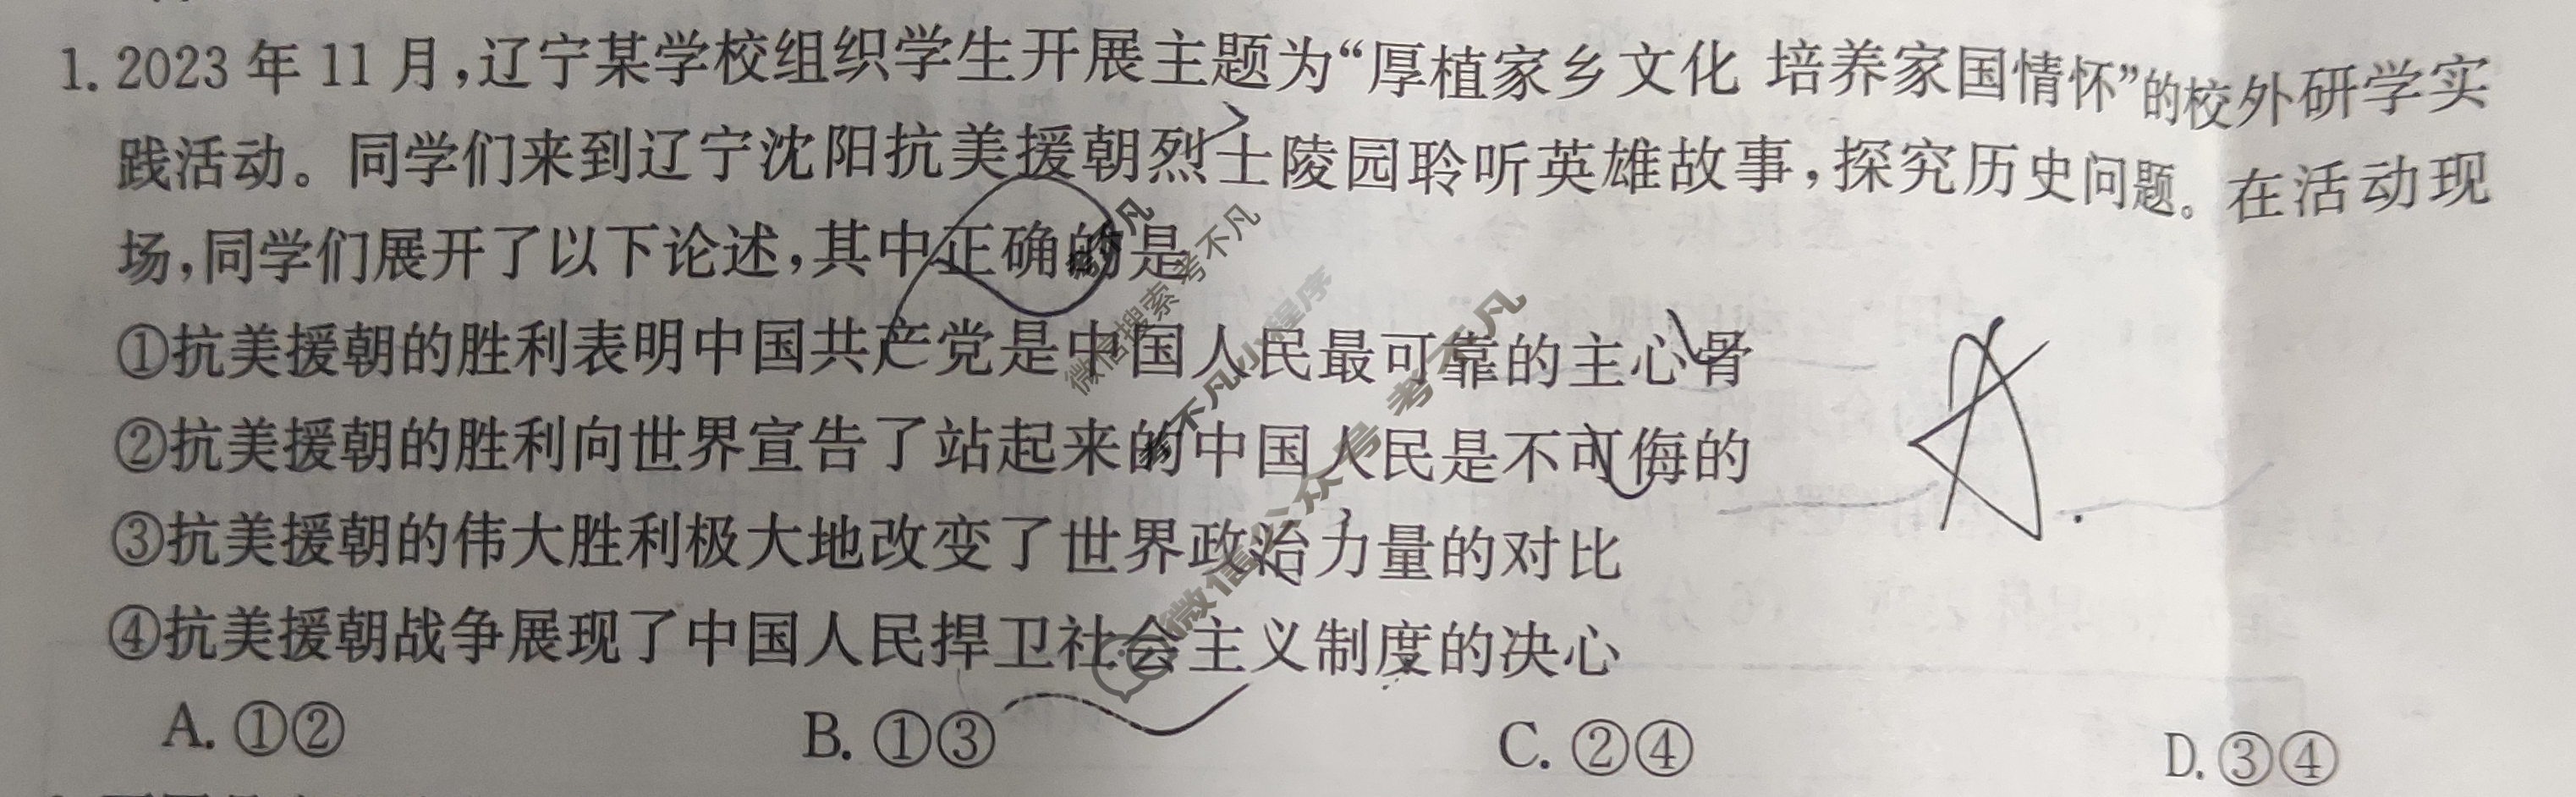 1. 2023年11月,辽宁某学校组织学生开展主题为“厚植家乡文化 培养家国情怀”的校外研学实
践活动。同学们来到辽宁沈阳抗美援朝烈士陵园聆听英雄故事,探究历史问题。在活动现
场,同学们展开了以下论述,其中正确的是
①抗美援朝的胜利表明中国共产党是中国人民最可靠的主心骨
②抗美援朝的胜利向世界宣告了站起来的中国人民是不可侮的
③抗美援朝的伟大胜利极大地改变了世界政治力量的对比
④抗美援朝战争展现了中国人民捍卫社会主义制度的决心
A. ①② B. ①③ C. ②④ D. ③④
微信搜索 考不凡
微信公众号 考不凡